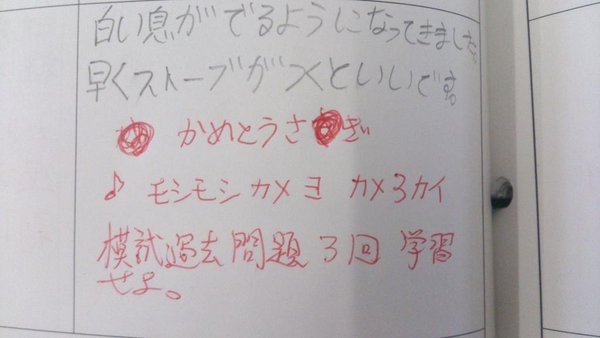 白い息がでるようになってきました。
早くストーブがつくといいです。
かめとうさぎ
♪ モシモシカメヨ カメ3カイ
模試過去問題 3回 学習
せよ。